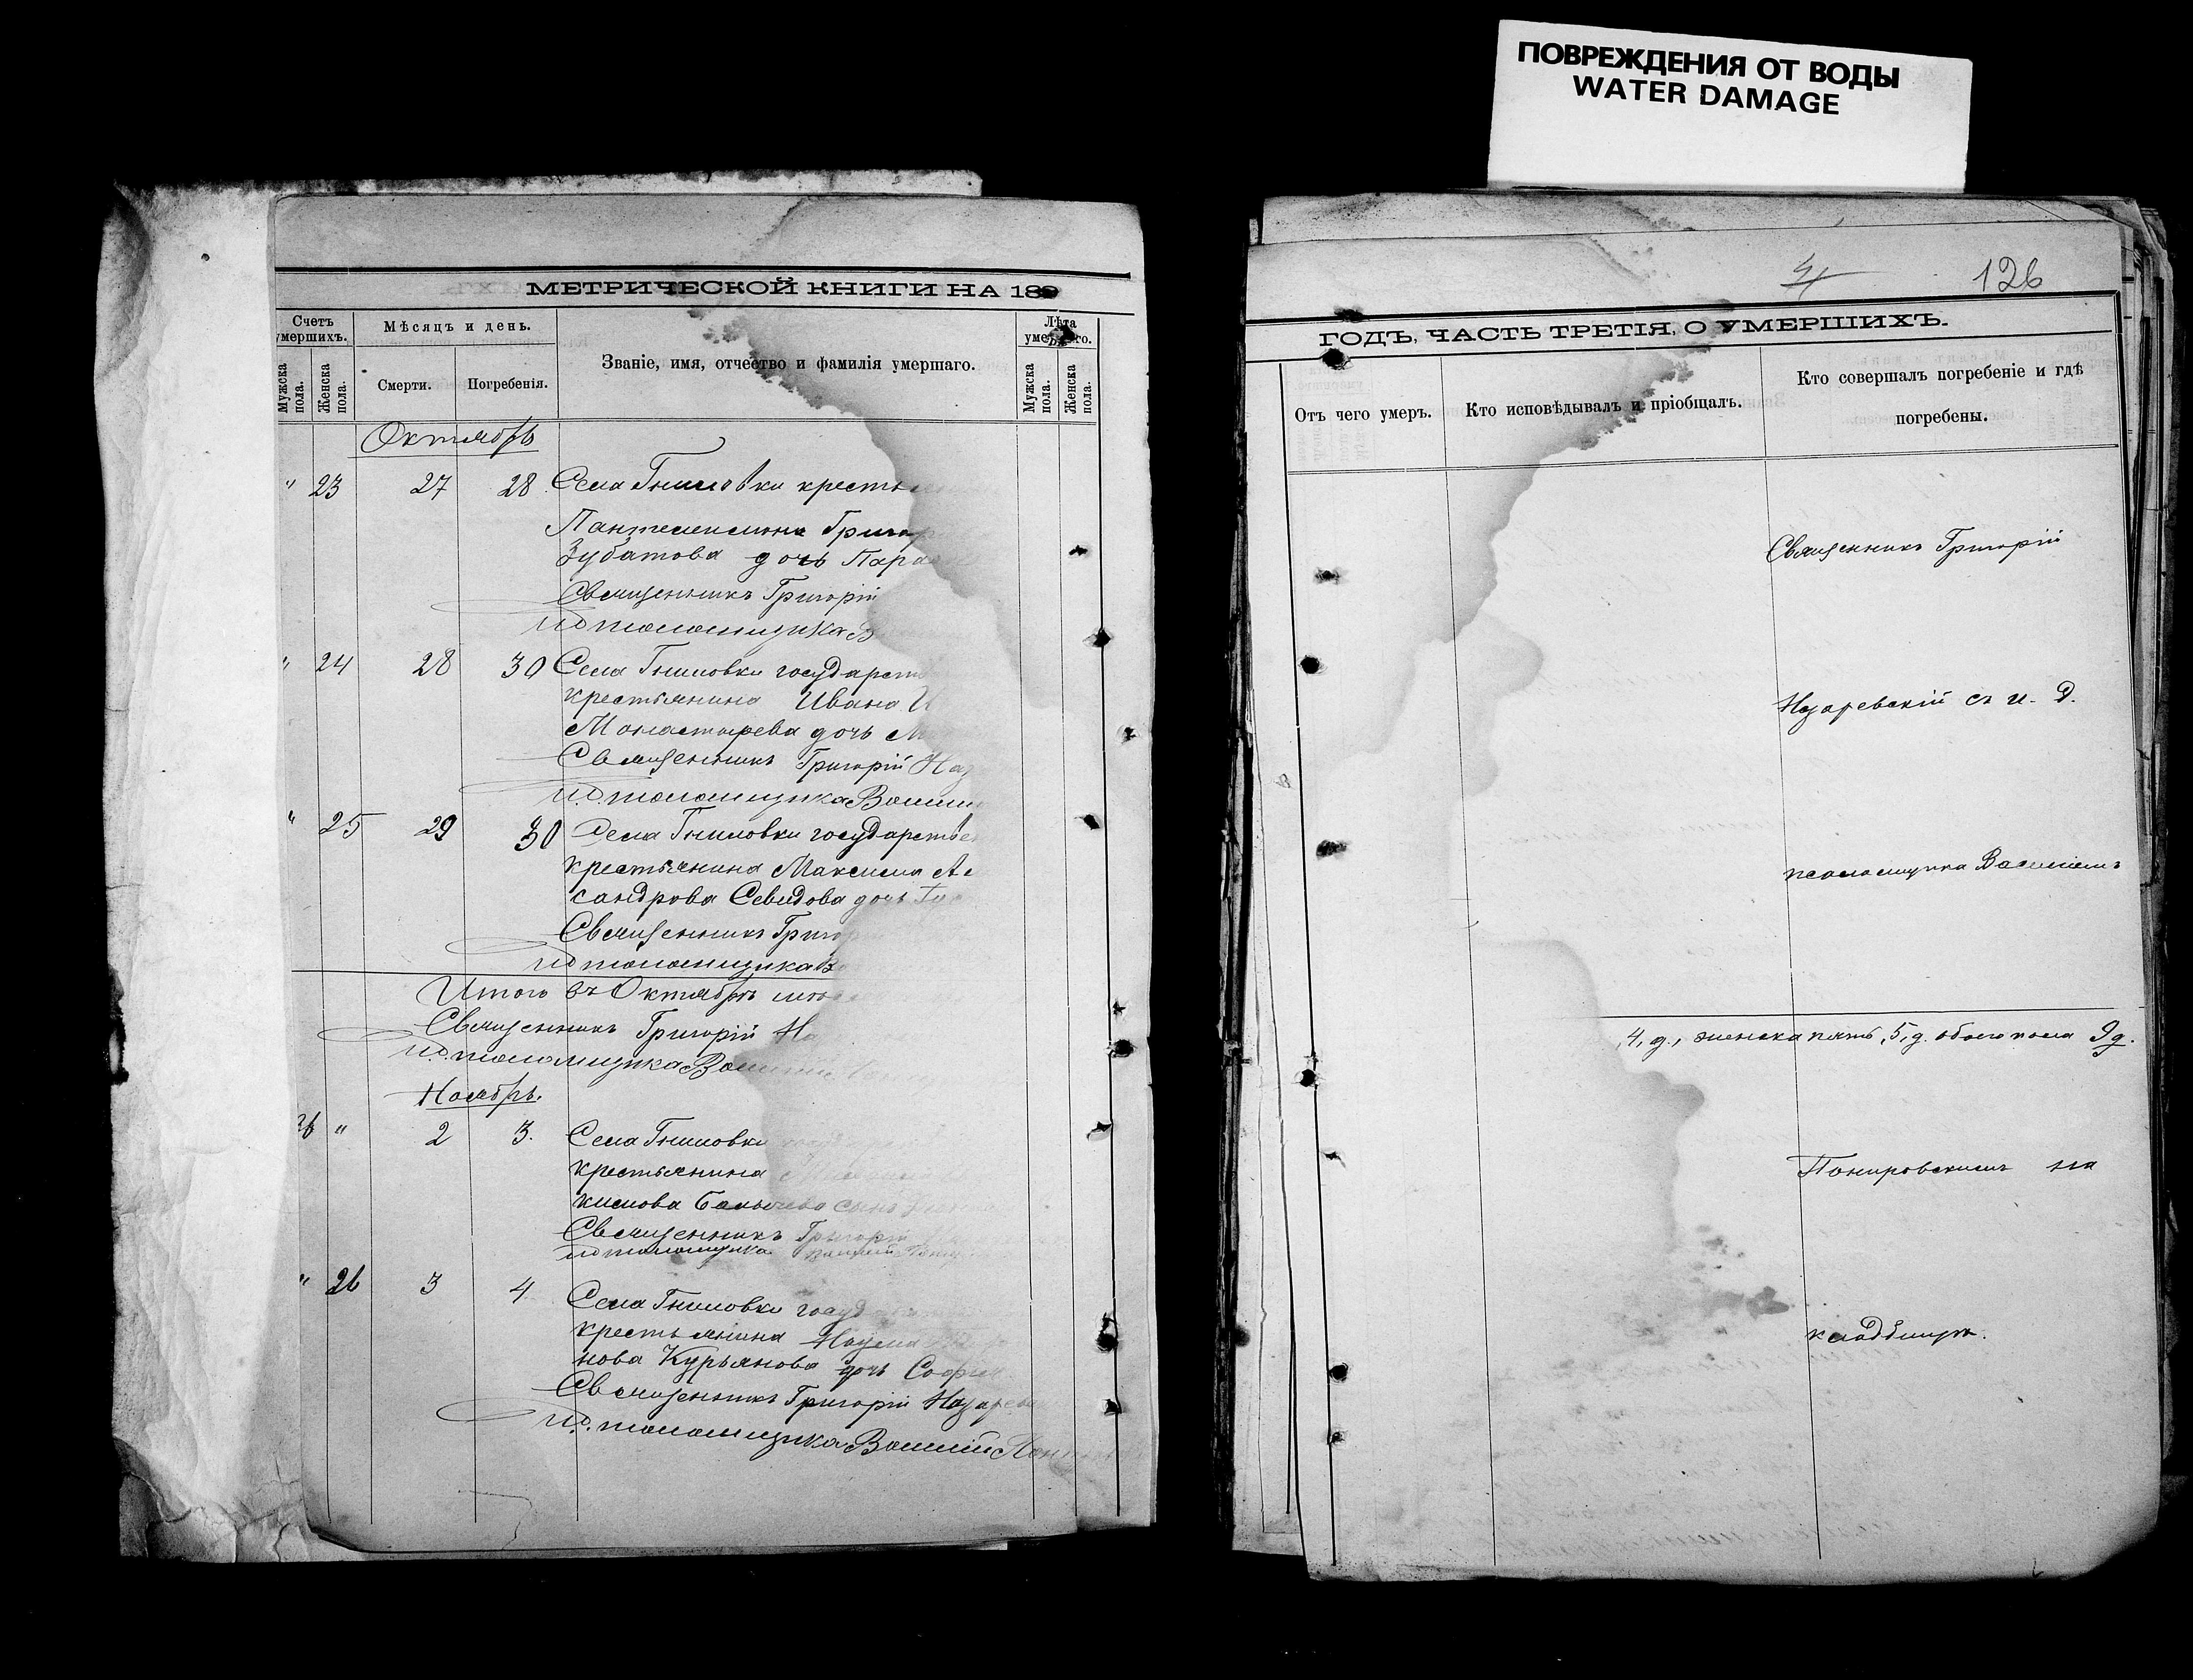 ПОВРЕЖДЕНИЯ ОТ ВОДЫ
WATER DAMAGE
МЕТРИЧЕСКОЙ КНИГИ НА 189
Счетъ умершихъ.
Мѣсяцъ и день.
Званіе, имя, отчество и фамилія умершаго.
Лѣта
Мужска пола.
Женска пола.
Смерти.
Погребенія.
Мужска пола.
Женска пола.
Октябрь
" 23 27 28 Села Гниловки
Григор
Зубатова дочь
Священникъ Григорій
И д псаломщика В
" 24 28 30 Села Гниловки государств
крестьянина Ивана
Монастырева дочь
Священникъ Григорій Наз
И. д. псаломщика Васил
" 25 29 30 Села Гниловки государствен
крестьянина Максима Але
ксандрова Севидова дочь
Священникъ Григор
И д псаломщика В
Итого въ Октябрѣ
Священникъ Григорій На
И. д. псаломщика Василій
Ноябрь.
26 " 2 3. Села Гниловки
крестьянина
кимова сынъ
Священникъ Григорій
И д псаломщика Василій
" 26 3 4 Села Гниловки госуд
крестьянина Наума
нова Курьянова дочь Софія
Священникъ Григорій Назарев
И. д. псаломщика Василій Пон
4 126
ГОДЪ, ЧАСТЬ ТРЕТІЯ, О УМЕРШИХЪ.
Отъ чего умеръ.
Кто исповѣдывалъ и пріобщалъ.
Кто совершалъ погребеніе и гдѣ
погребены.
Священникъ Григорій
Назаревскій съ и. д.
псаломщика Василіемъ
4, д., женска пять, 5, д. обоего пола 9 д.
Понировскимъ на
кладбищѣ.